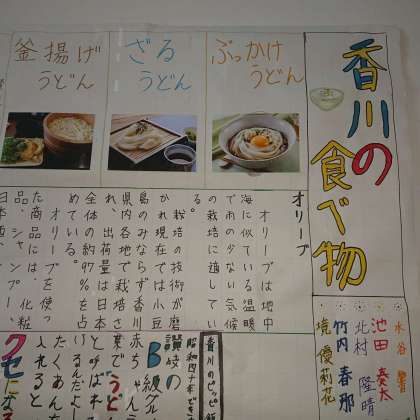 香川の
食べ物
ぶっかけ
うどん
ざる
うどん
釜揚げ
うどん
オリーブ
オリーブは地中
海に似ている温暖
で雨の少ない気候
の栽培に適してい
栽培の技術が磨
かれ現在では小豆
島のみならず香川
県内各地で栽培さ
れ、出荷量は日本
全体の約97％を占
めている。
オリーブを使っ
た商品には、化粧
品、シャンプー、
水谷
池田 奏太
北村 隆晴
竹内 春那
境 優莉花
香川のピッピ飯
昭和四十年
讃岐の
B級グル
赤ちゃん
葉でうど
と呼ばれ
たくあん
入れると
クセにな